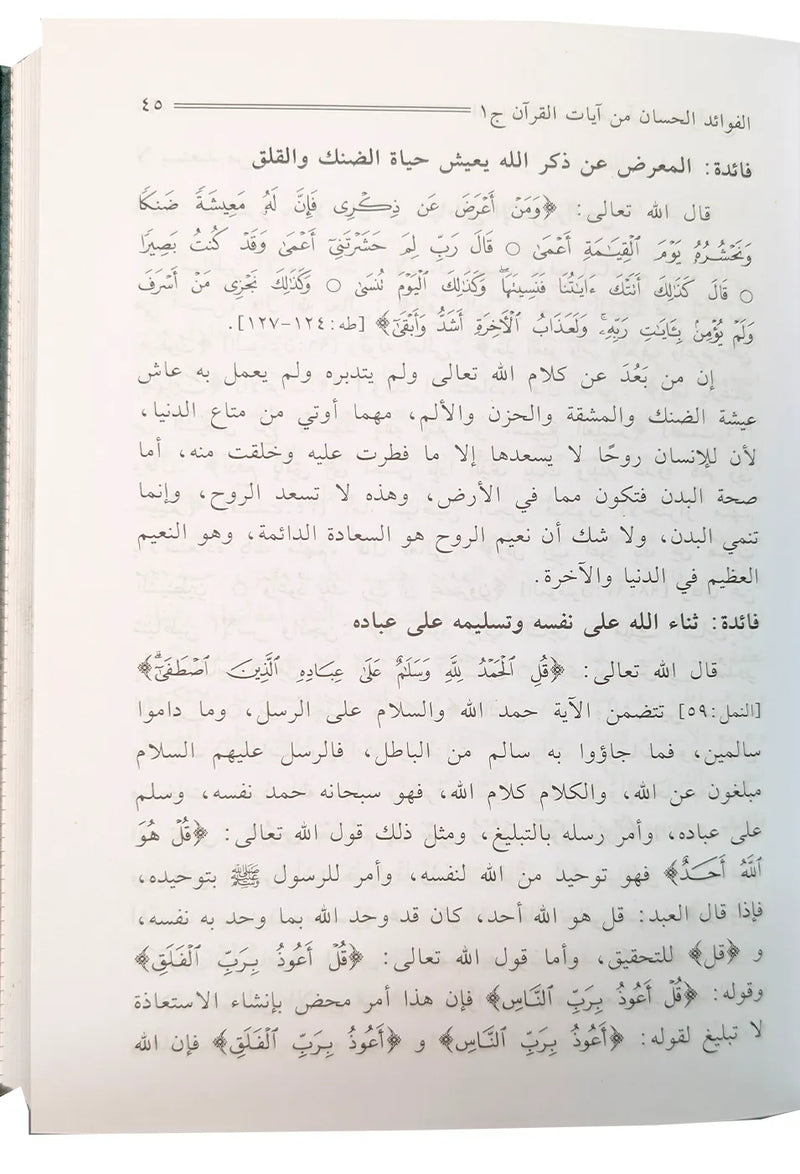 الفوائد الحسان من آيات القرآن ج١ ٤٥
فائدة: المعرض عن ذكر الله يعيش حياة الضنك والقلق
قال الله تعالى: ﴿وَمَنْ أَعْرَضَ عَن ذِكْرِى فَإِنَّ لَهُۥ مَعِيشَةً ضَنكًا
وَنَحْشُرُهُۥ يَوْمَ ٱلْقِيَـٰمَةِ أَعْمَىٰ ○ قَالَ رَبِّ لِمَ حَشَرْتَنِىٓ أَعْمَىٰ وَقَدْ كُنتُ بَصِيرًا
○ قَالَ كَذَٰلِكَ أَتَتْكَ ءَايَـٰتُنَا فَنَسِيتَهَا ۖ وَكَذَٰلِكَ ٱلْيَوْمَ تُنسَىٰ ○ وَكَذَٰلِكَ نَجْزِى مَنْ أَسْرَفَ
وَلَمْ يُؤْمِنۢ بِـَٔايَـٰتِ رَبِّهِۦ ۚ وَلَعَذَابُ ٱلْأَخِرَةِ أَشَدُّ وَأَبْقَىٰٓ﴾ [طه: ١٢٤-١٢٧].
إن من بَعُدَ عن كلام الله تعالى ولم يتدبره ولم يعمل به عاش
عيشة الضنك والمشقة والحزن والألم، مهما أوتي من متاع الدنيا،
لأن للإنسان روحًا لا يسعدها إلا ما فطرت عليه وخلقت منه، أما
صحة البدن فتكون مما في الأرض، وهذه لا تسعد الروح، وإنما
تنمي البدن، ولا شك أن نعيم الروح هو السعادة الدائمة، وهو النعيم
العظيم في الدنيا والآخرة.
فائدة: ثناء الله على نفسه وتسليمه على عباده
قال الله تعالى: ﴿قُلِ ٱلْحَمْدُ لِلَّهِ وَسَلَـٰمٌ عَلَىٰ عِبَادِهِ ٱلَّذِينَ ٱصْطَفَىٰٓ ۗ﴾
[النمل: ٥٩] تتضمن الآية حمد الله والسلام على الرسل، وما داموا
سالمين، فما جاؤوا به سالم من الباطل، فالرسل عليهم السلام
مبلغون عن الله، والكلام كلام الله، فهو سبحانه حمد نفسه، وسلم
على عباده، وأمر رسله بالتبليغ، ومثل ذلك قول الله تعالى: ﴿قُلْ هُوَ
ٱللَّهُ أَحَدٌ﴾ فهو توحيد من الله لنفسه، وأمر للرسول ﷺ بتوحيده،
فإذا قال العبد: قل هو الله أحد، كان قد وحد الله بما وحد به نفسه،
و ﴿قل﴾ للتحقيق، وأما قول الله تعالى: ﴿قُلْ أَعُوذُ بِرَبِّ ٱلْفَلَقِ﴾
وقوله: ﴿قُلْ أَعُوذُ بِرَبِّ ٱلنَّاسِ﴾ فإن هذا أمر محض بإنشاء الاستعاذة
لا تبليغ لقوله: ﴿أَعُوذُ بِرَبِّ ٱلنَّاسِ﴾ و ﴿أَعُوذُ بِرَبِّ ٱلْفَلَقِ﴾ فإن الله